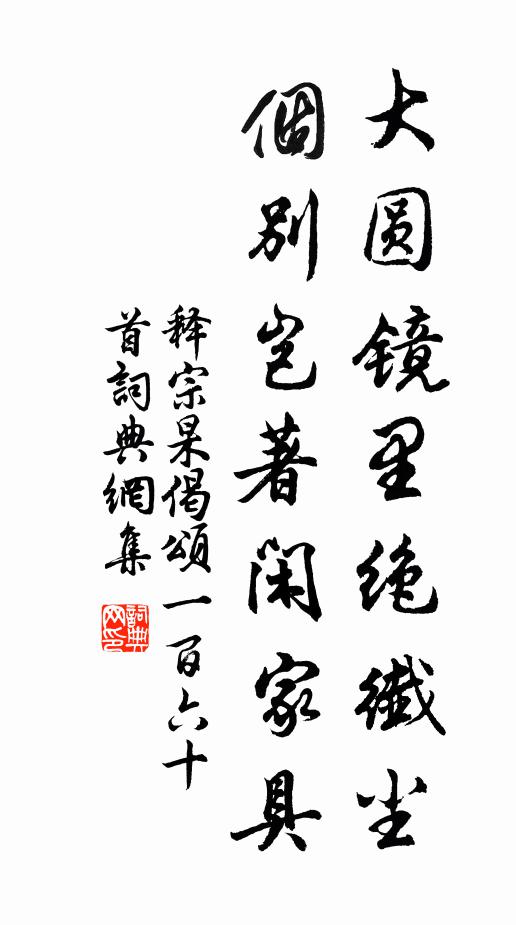 大圆镜里绝纎尘
個別岂著闲家具
释宗杲偈頌一百六十
首詞典網集
詞典网印